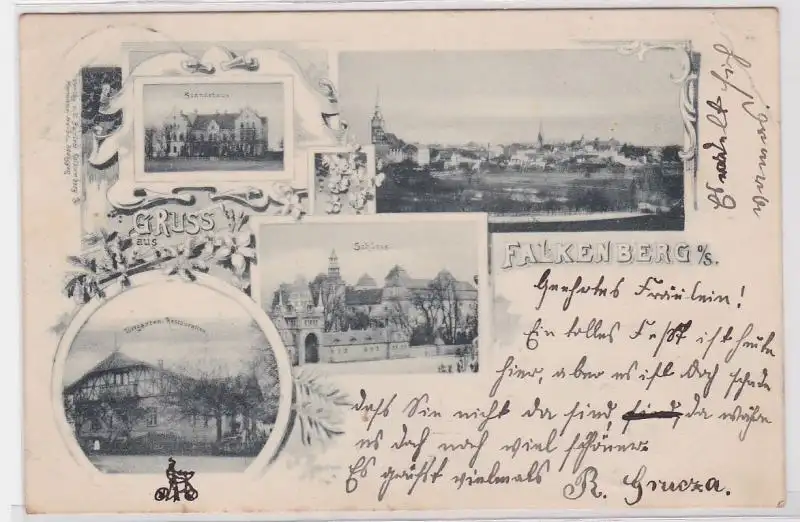 Ständehaus
GRUSS
aus
Schloss
FALKENBERG O/S.
Tiergarten-Restauration
Geehrtes Fräulein!
Ein tolles Fest ist heute
hier, aber es ist doch schade
dass Sie nicht da sind, da wäre
es doch noch viel schöner.
Es grüsst vielmals R. Grucza.